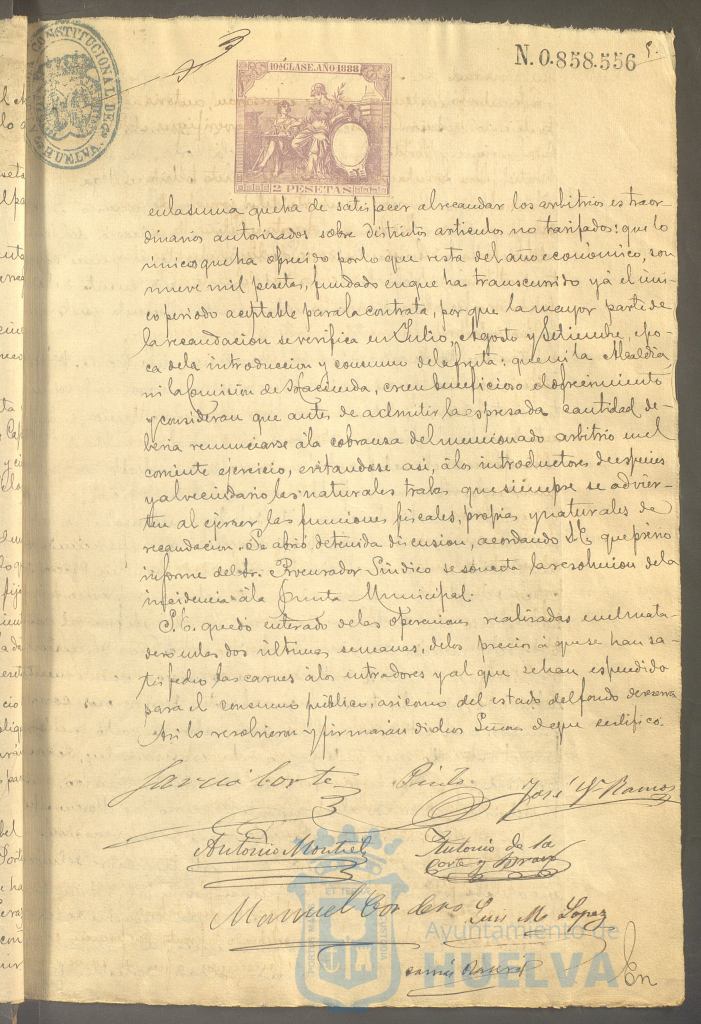 CONSTITUCIONAL DE
HUELVA
N. 0.858.556
10ª CLASE. AÑO 1888
2 PESETAS
en la suma que ha de satisfacer al recaudar los arbitrios estraor-
dinarios autorizados sobre distintos articulos no tarifados: que lo
único que ha ofrecido por lo que resta del año económico, son
nueve mil pesetas, fundado en que ha transcurrido yá el úni-
co periodo aceptable para la contrata, por que la mayor parte de
la recaudacion se verifica en Julio, Agosto y Setiembre, épo-
ca de la introduccion y consumo de la fruta: que ni la Alcaldia
ni la Comision de Hacienda, creen beneficioso el ofrecimiento
y consideran que antes de admitir la espresada cantidad de-
beria renunciarse á la cobranza del mencionado arbitrio en el
corriente ejercicio, evitandose asi, á los introductores de especies
y al vecindario las naturales trabas que siempre se advier-
ten al ejercer las funciones fiscales, propias y naturales de
recaudacion. Se abrió detenida discusion, acordando S.E. que prévio
informe del Sr. Procurador Síndico se someta la resolucion de la
incidencia á la Junta Municipal.
S.E. quedó enterado de las operaciones realizadas en el mata-
dero en las dos últimas semanas, de los precios á que se han sa-
tisfecho las carnes á los entradores y al que se han espendido
para el consumo público, asi como del estado del fondo de reserva
Asi lo resolvieron y firmarán dichos Señores de que certifico.
Garcia Corte
José Gª Ramos
Antonio Montiel
Antonio de la
Corte y
Manuel Cordero
Luis Mª Lopez
En
Ayuntamiento de
HUELVA